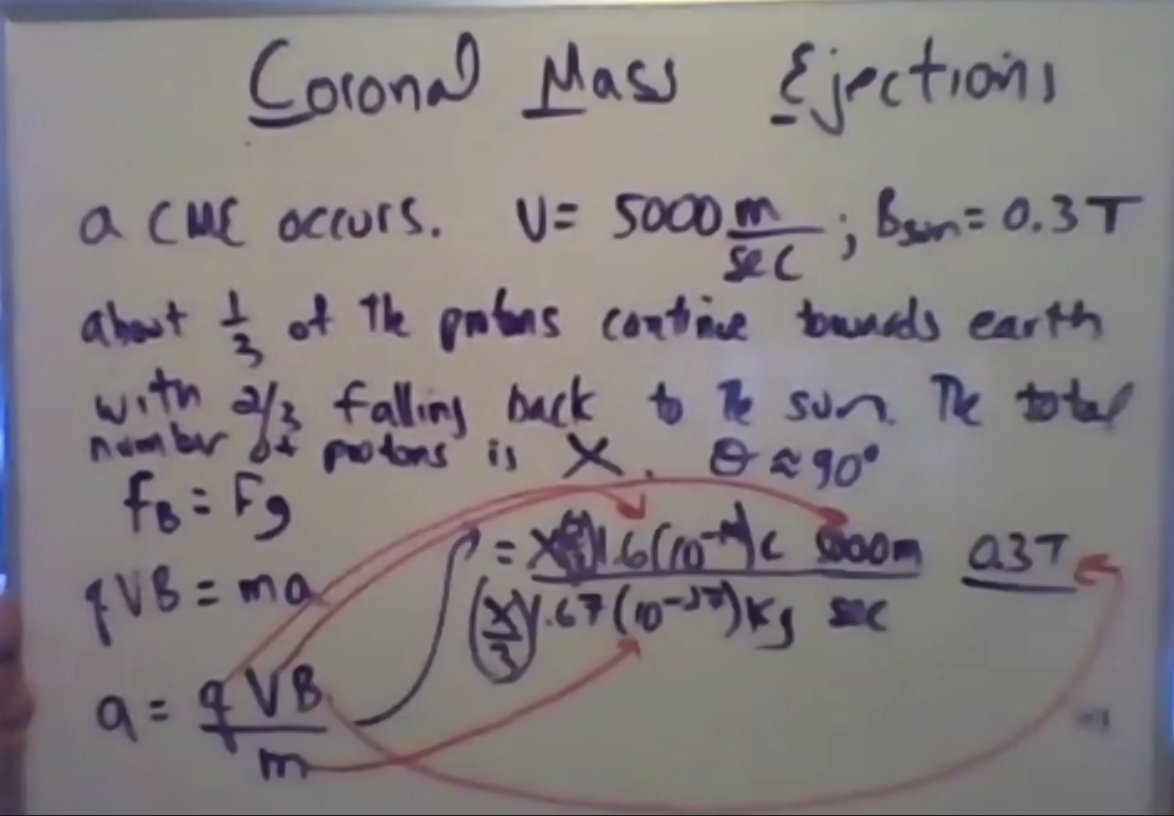 Coronal Mass Ejections
a CME occurs. V = 5000 m/sec ; Bsun = 0.3 T
about 1/3 of the protons continue towards earth
with 2/3 falling back to the sun. The total
number of protons is X. θ ≈ 90°
FB = Fg
qVB = ma
a = qVB/m
1.6(10 C 5000m 0.3T
(X/3) 1.67(10⁻²⁷)Kg sec